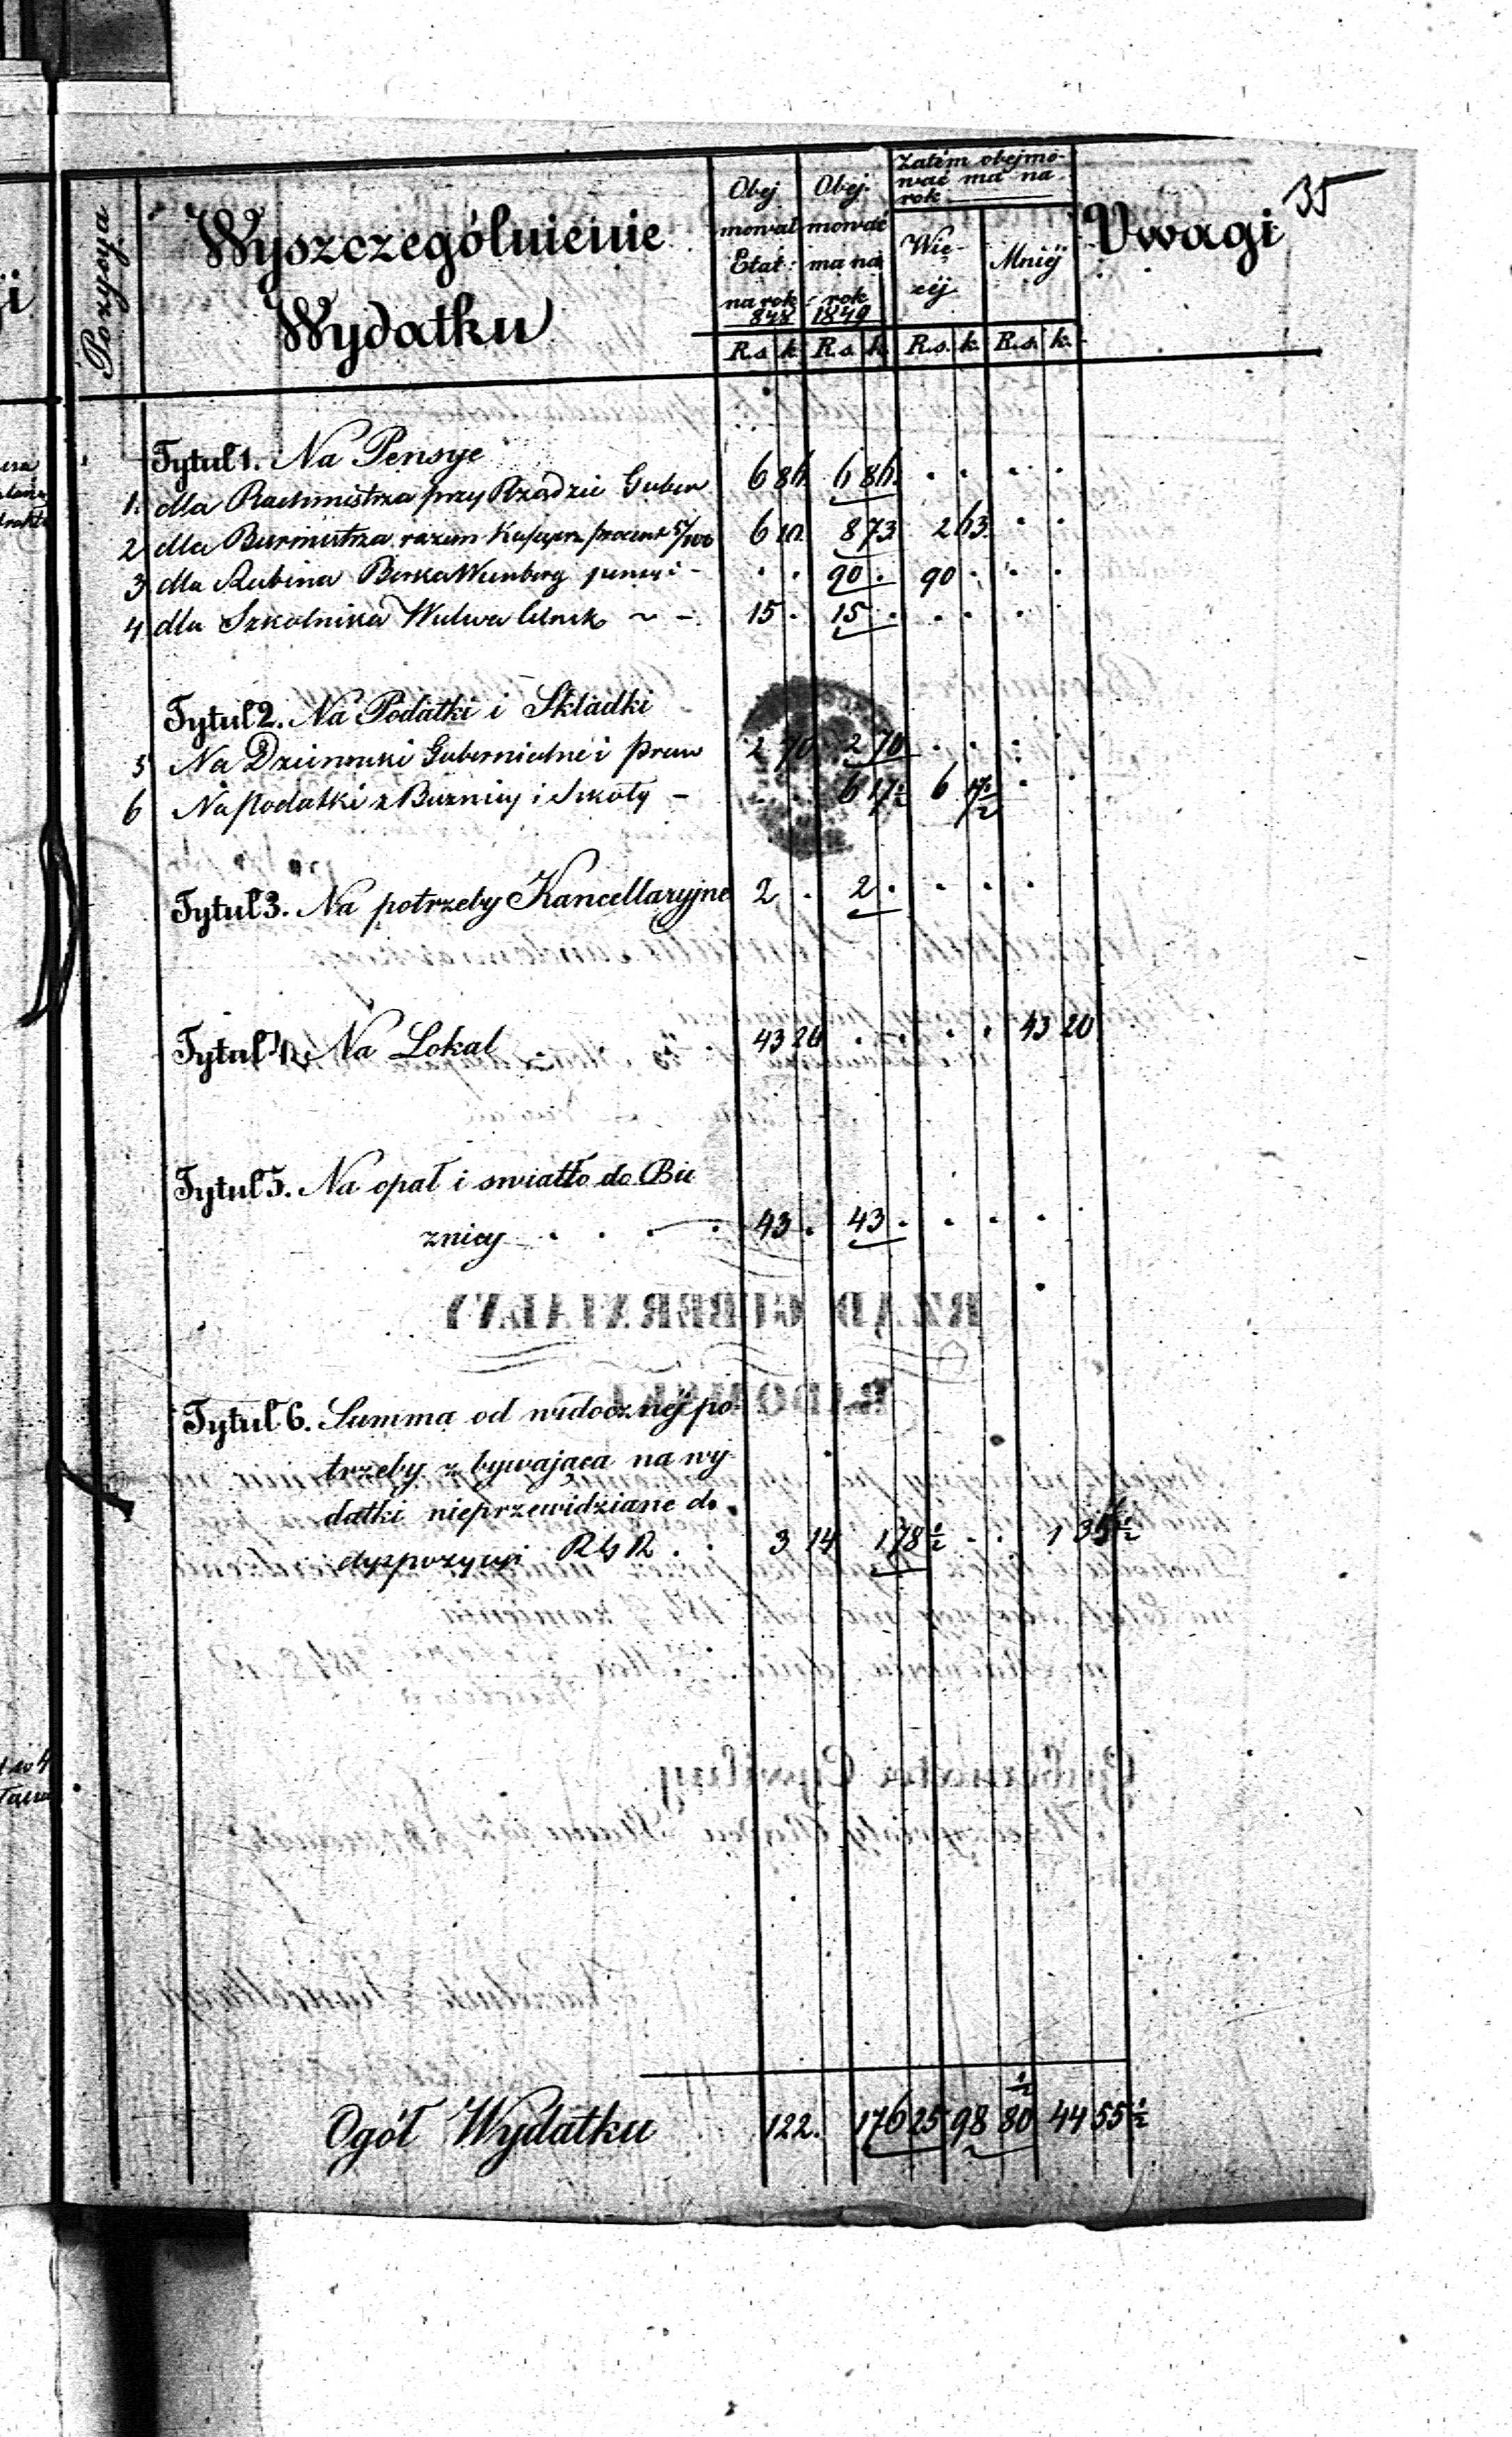 35
Pozycya
Wyszczególnienie
Wydatku
Obej
mował
Etat
na rok
848
R.s. k.
Obej
mować
ma na
rok
1849
R.s. k.
Zatém obejmo-
wać ma na
rok
Wię-
céj
R.s. k.
Mniéj
R.s. k.
Uwagi
Tytuł 1. Na Pensye
1. dla Rachmistrza przy Rządzie Guber 6 84 6 84
2 dla Burmistrza razem Kassyera procent 5/100 6 10 8 73 2 63
3 dla Rabina Berka pensyi - 90 . 90 .
4 dla Szkolnika 15 . 15 .
Tytuł 2. Na Podatki i Składki
5 Na Dzienniki Gubernialne i Praw 2 70 2 70
6 Na podatki z Buznicy i Szkoły - 6 17½ 6 17½
Tytuł 3. Na potrzeby Kancellaryjne 2 . 2 .
Tytuł 4. Na Lokal 43 20 43 20
Tytuł 5. Na opał i swiatło do Bu
znicy 43 . 43 .
RZĄD GUBERNIALNY
Tytuł 6. Summa od widocznéj po
trzeby zbywająca na wy
datki nieprzewidziane do
dyspozycyi R G R. 3 14 1 78½ 1 35½
Ogół Wydatku 122. 176 25 98 80½ 44 55½